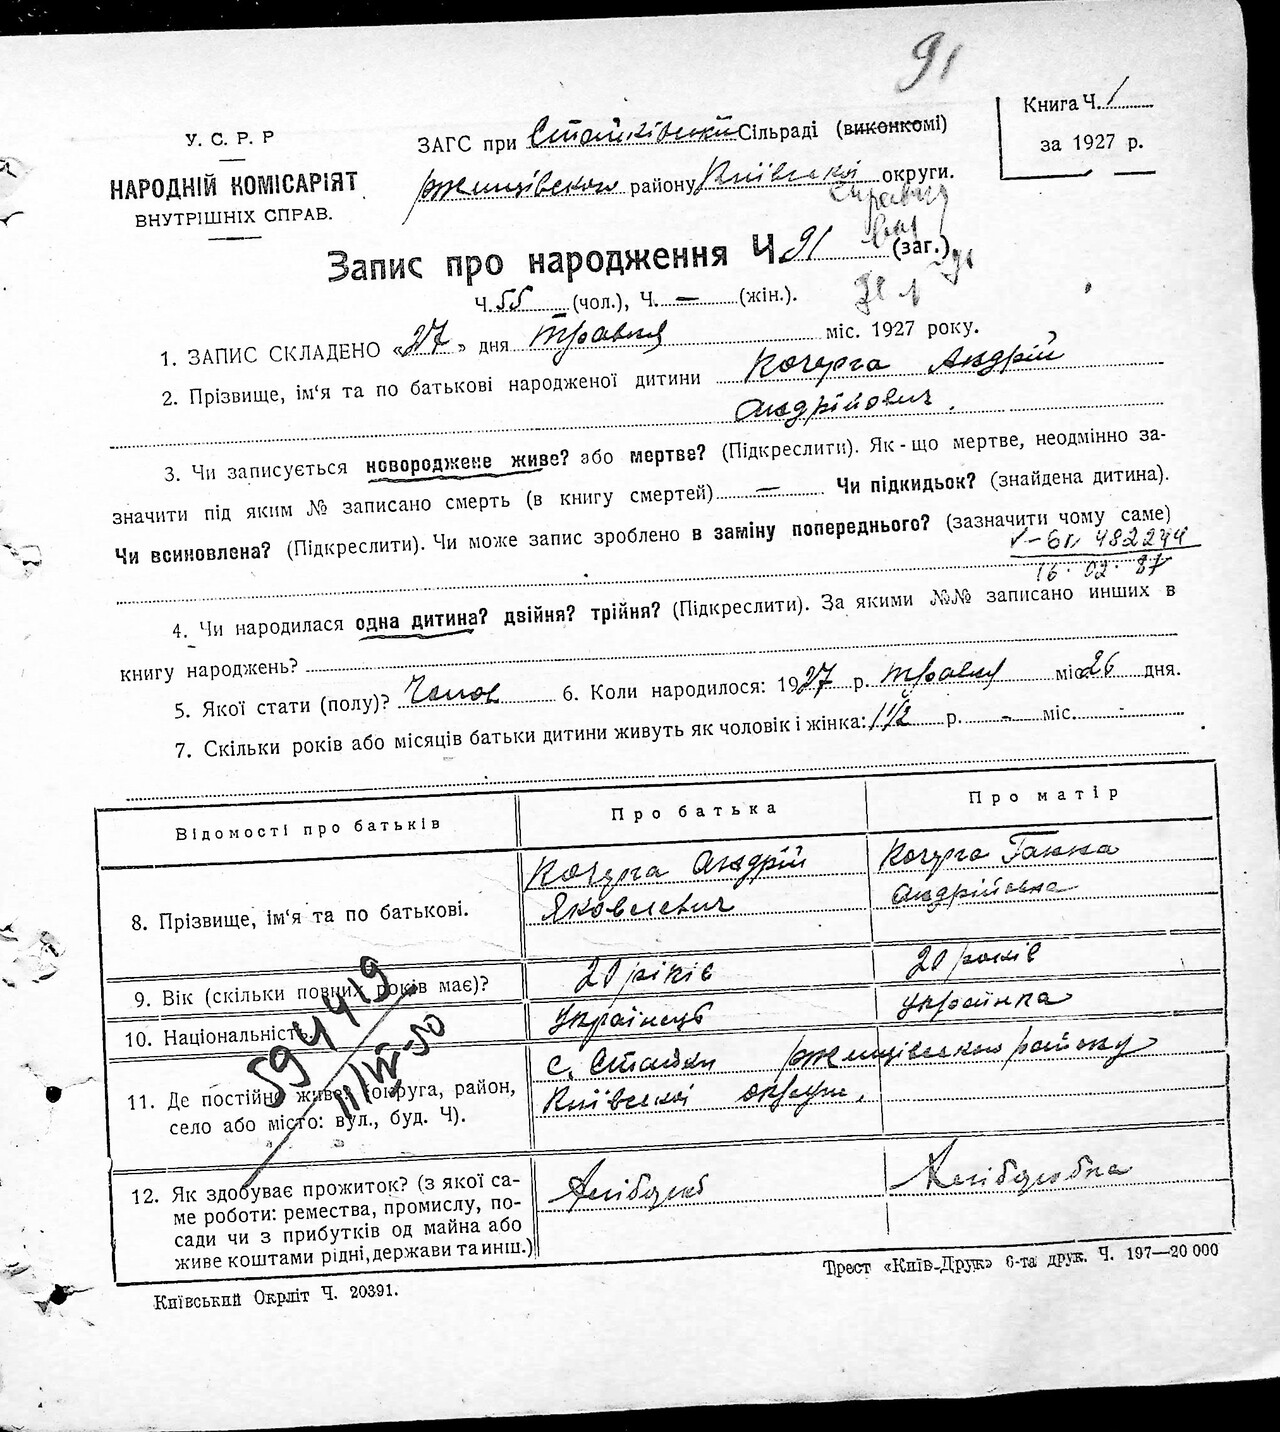 91
Книга Ч. 1
за 1927 р.
У. С. Р. Р
НАРОДНІЙ КОМІСАРІЯТ
ВНУТРІШНІХ СПРАВ.
ЗАГС при Стайківській Сільраді (виконкомі)
Ржищівського району Київської округи.
Запис про народження Ч. 91 (заг.)
Ч. 55 (чол.), Ч. — (жін.).
1. ЗАПИС СКЛАДЕНО «27» дня травня міс. 1927 року.
2. Прізвище, ім'я та по батькові народженої дитини Кочерга Андрій
Андрійович.
3. Чи записується новороджене живе? або мертве? (Підкреслити). Як-що мертве, неодмінно за-
значити під яким № записано смерть (в книгу смертей) — Чи підкидьок? (знайдена дитина).
Чи всиновлена? (Підкреслити). Чи може запис зроблено в заміну попереднього? (зазначити чому саме)
482244
16. 02. 87
4. Чи народилася одна дитина? двійня? трійня? (Підкреслити). За якими №№ записано инших в
книгу народжень?
5. Якої стати (полу)? Чолов 6. Коли народилося: 1927 р. травня міс. 26 дня.
7. Скільки років або місяців батьки дитини живуть як чоловік і жінка: 1 1/2 р. - міс. -
Відомості про батьків Про батька Про матір
8. Прізвище, ім'я та по батькові. Кочерга Андрій Кочерга Ганна
Яковлевич Андрійовна
9. Вік (скільки повних років має)? 20 років 20 років
10. Національність. Українець Українка
594419
11/VII-50
11. Де постійно живе? (округа, район, с. Стайки Ржищівського району
село або місто: вул., буд. Ч). Київської округи.
12. Як здобуває прожиток? (з якої са- Хлібороб Хліборобка
ме роботи: ремества, промислу, по-
сади чи з прибутків од майна або
живе коштами рідні, держави та инш.)
Київський Окрліт Ч. 20391.
Трест «Київ-Друк» 6-та друк. Ч. 197—20 000